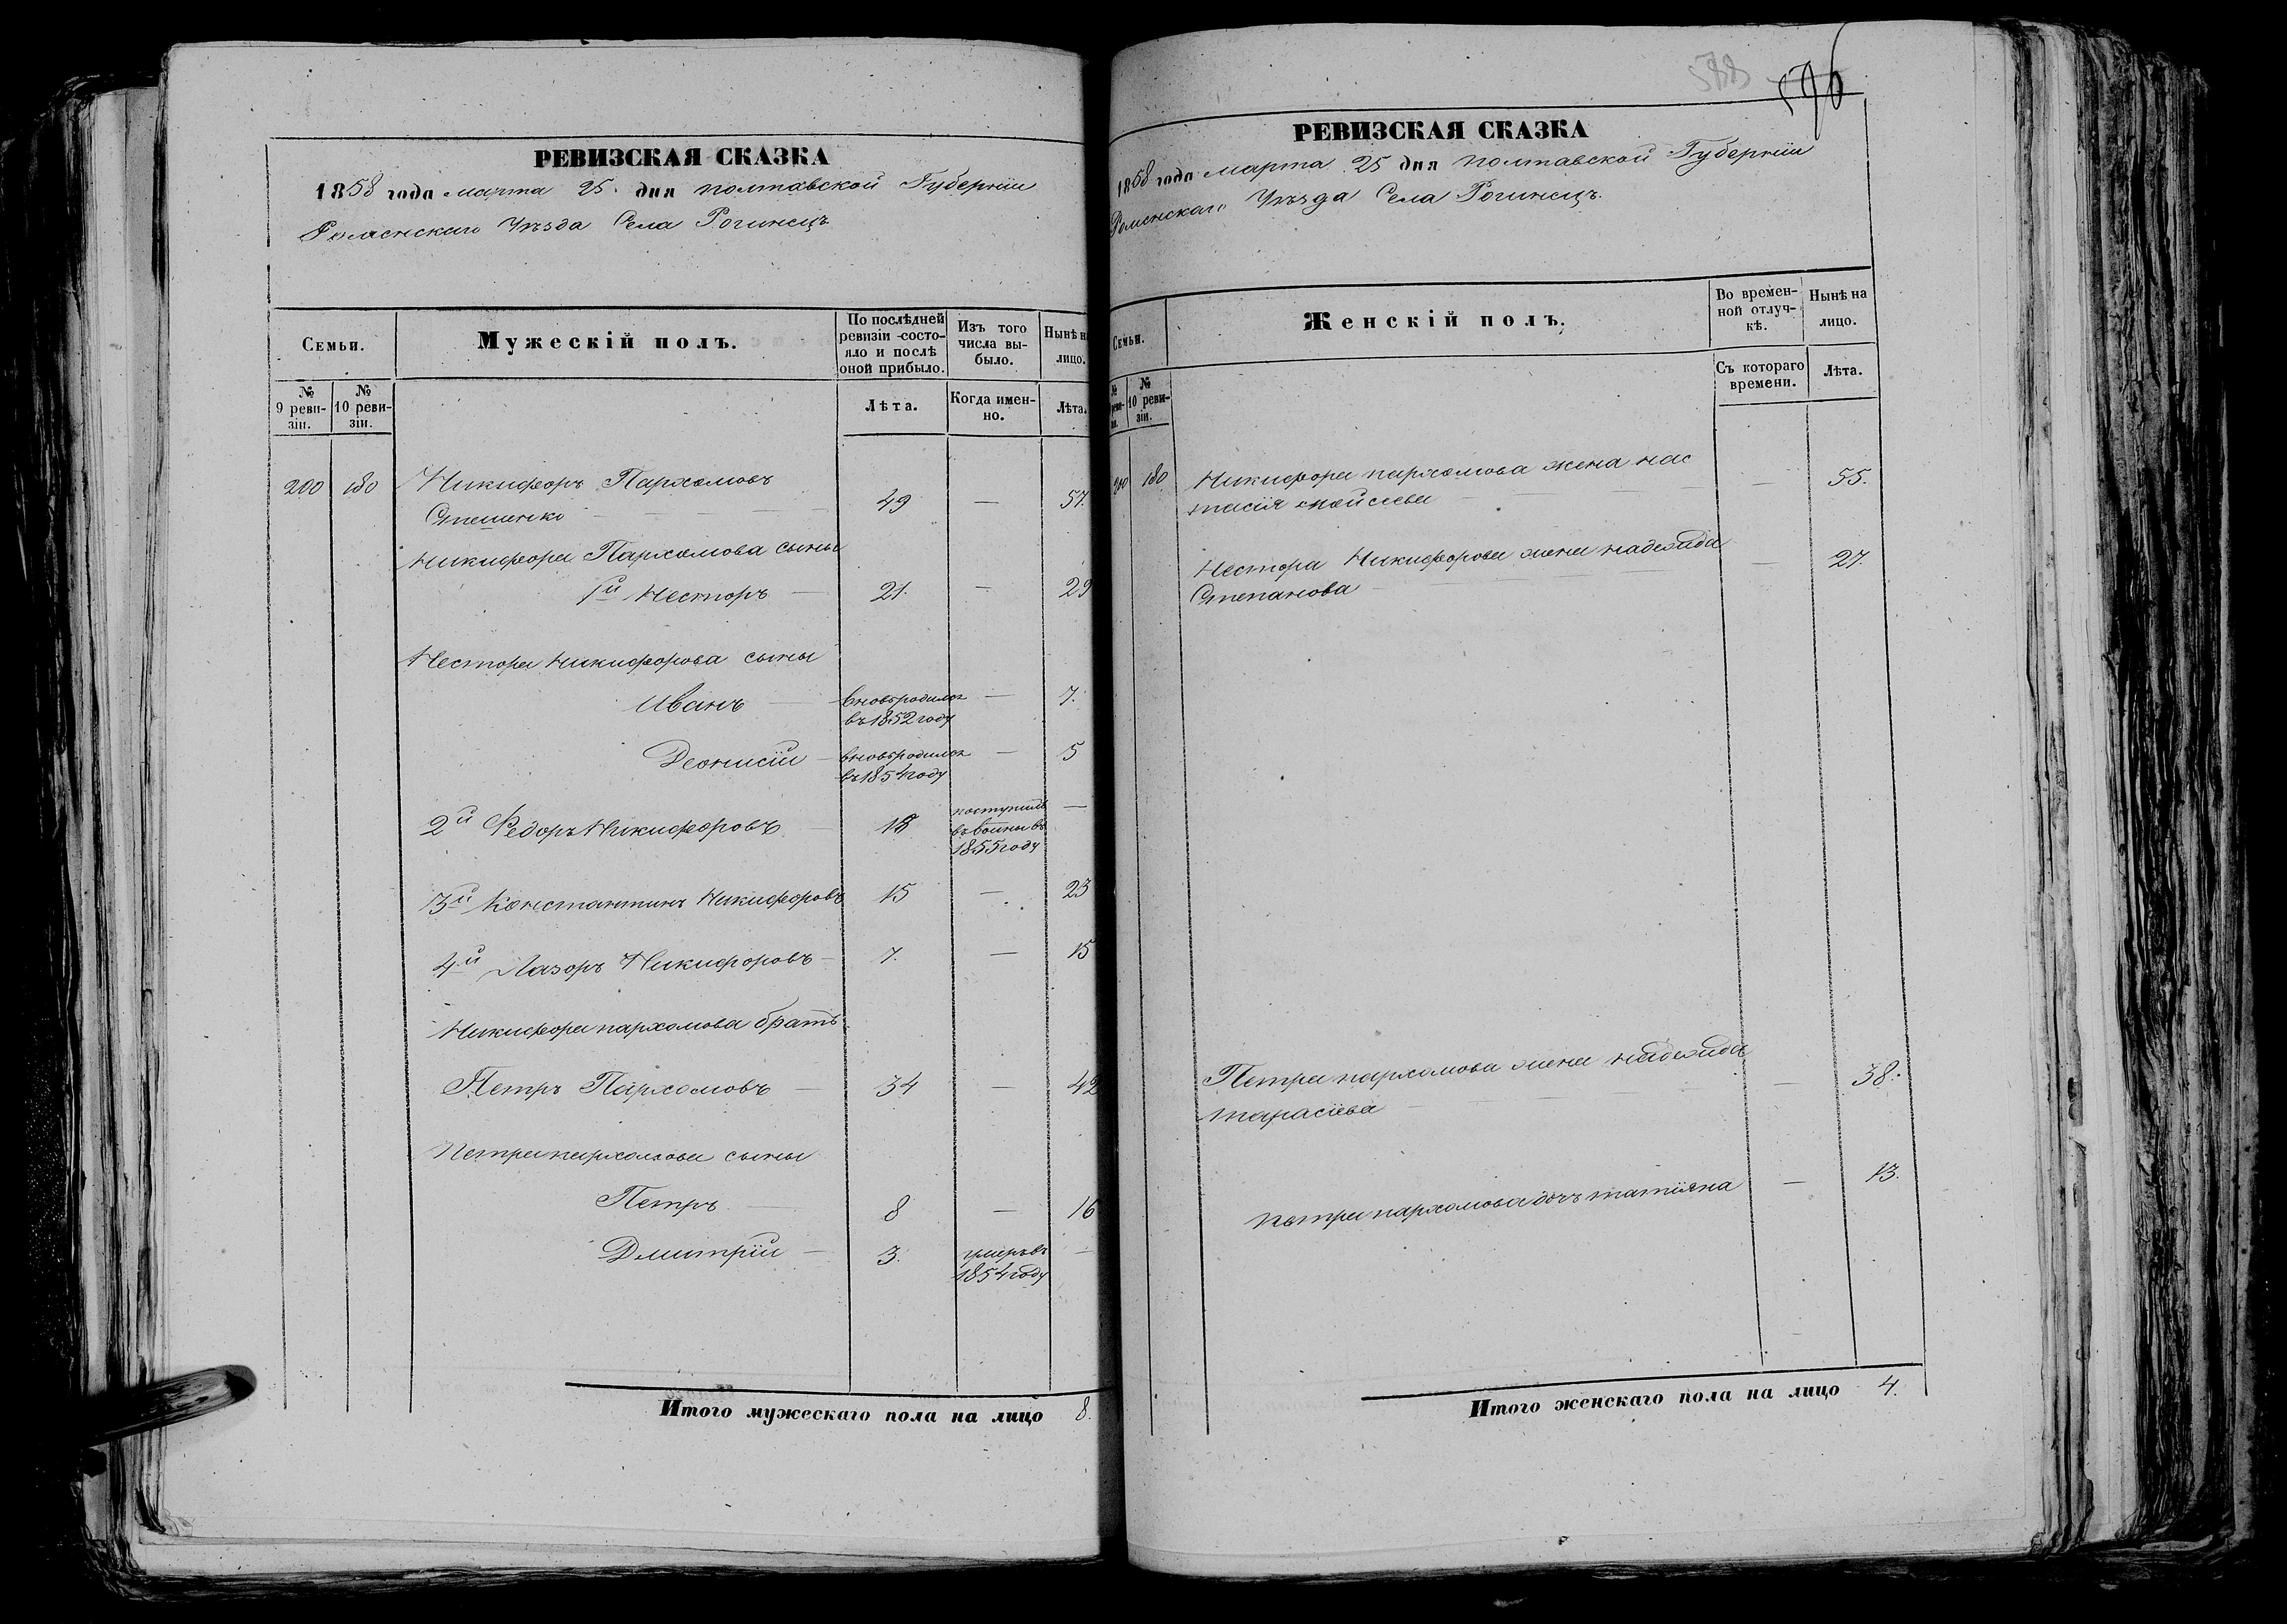 РЕВИЗСКАЯ СКАЗКА
1858 года марта 25 дня полтавской Губернии
Роменскаго Уѣзда Села Рогинецъ
Семьи.
Мужескій полъ.
По послѣдней ревизіи состояло и послѣ оной прибыло.
Изъ того числа выбыло.
Нынѣ на лицо.
№ 9 ревизіи.
№ 10 ревизіи.
Лѣта.
Когда именно.
Лѣта.
200 180 Никифоръ Пархомовъ
Стеценко 49 — 57.
Никифора Пархомова сыны
1й Несторъ — 21. — 29
Нестора Никифорова сыны
Иванъ — вновьродился — 7.
въ 1852 году
Деонисій — вновьродился — 5
въ 1854 году
2й Федоръ Никифоровъ — 18 поступилъ —
въ воины въ
1855 году
3й Константинъ Никифоровъ 15 — 23
4й Лазоръ Никифоровъ — 7. — 15
Никифора пархомова братъ
Петръ Пархомовъ — 34 — 42
Петра пархомова сыны
Петръ — 8 — 16
Дмитрій — 3. умеръ въ —
1854 году
Итого мужескаго пола на лицо 8.
588
596
РЕВИЗСКАЯ СКАЗКА
1858 года марта 25 дня полтавской Губерніи
Роменскаго Уѣзда Села Рогинецъ.
Семьи.
Женскій полъ.
Во временной отлучкѣ.
Нынѣ на лицо.
№ ревизіи.
№ 10 ревизіи.
Съ котораго времени.
Лѣта.
200 180 Никифора пархомова жена нас
тасія мойсеева — 55.
Нестора Никифорова жена надежда
Степанова — 27.
Петра пархомова жена надежда
тарасіева — 38.
петра пархомова дочь татіяна — 13.
Итого женскаго пола на лицо 4.